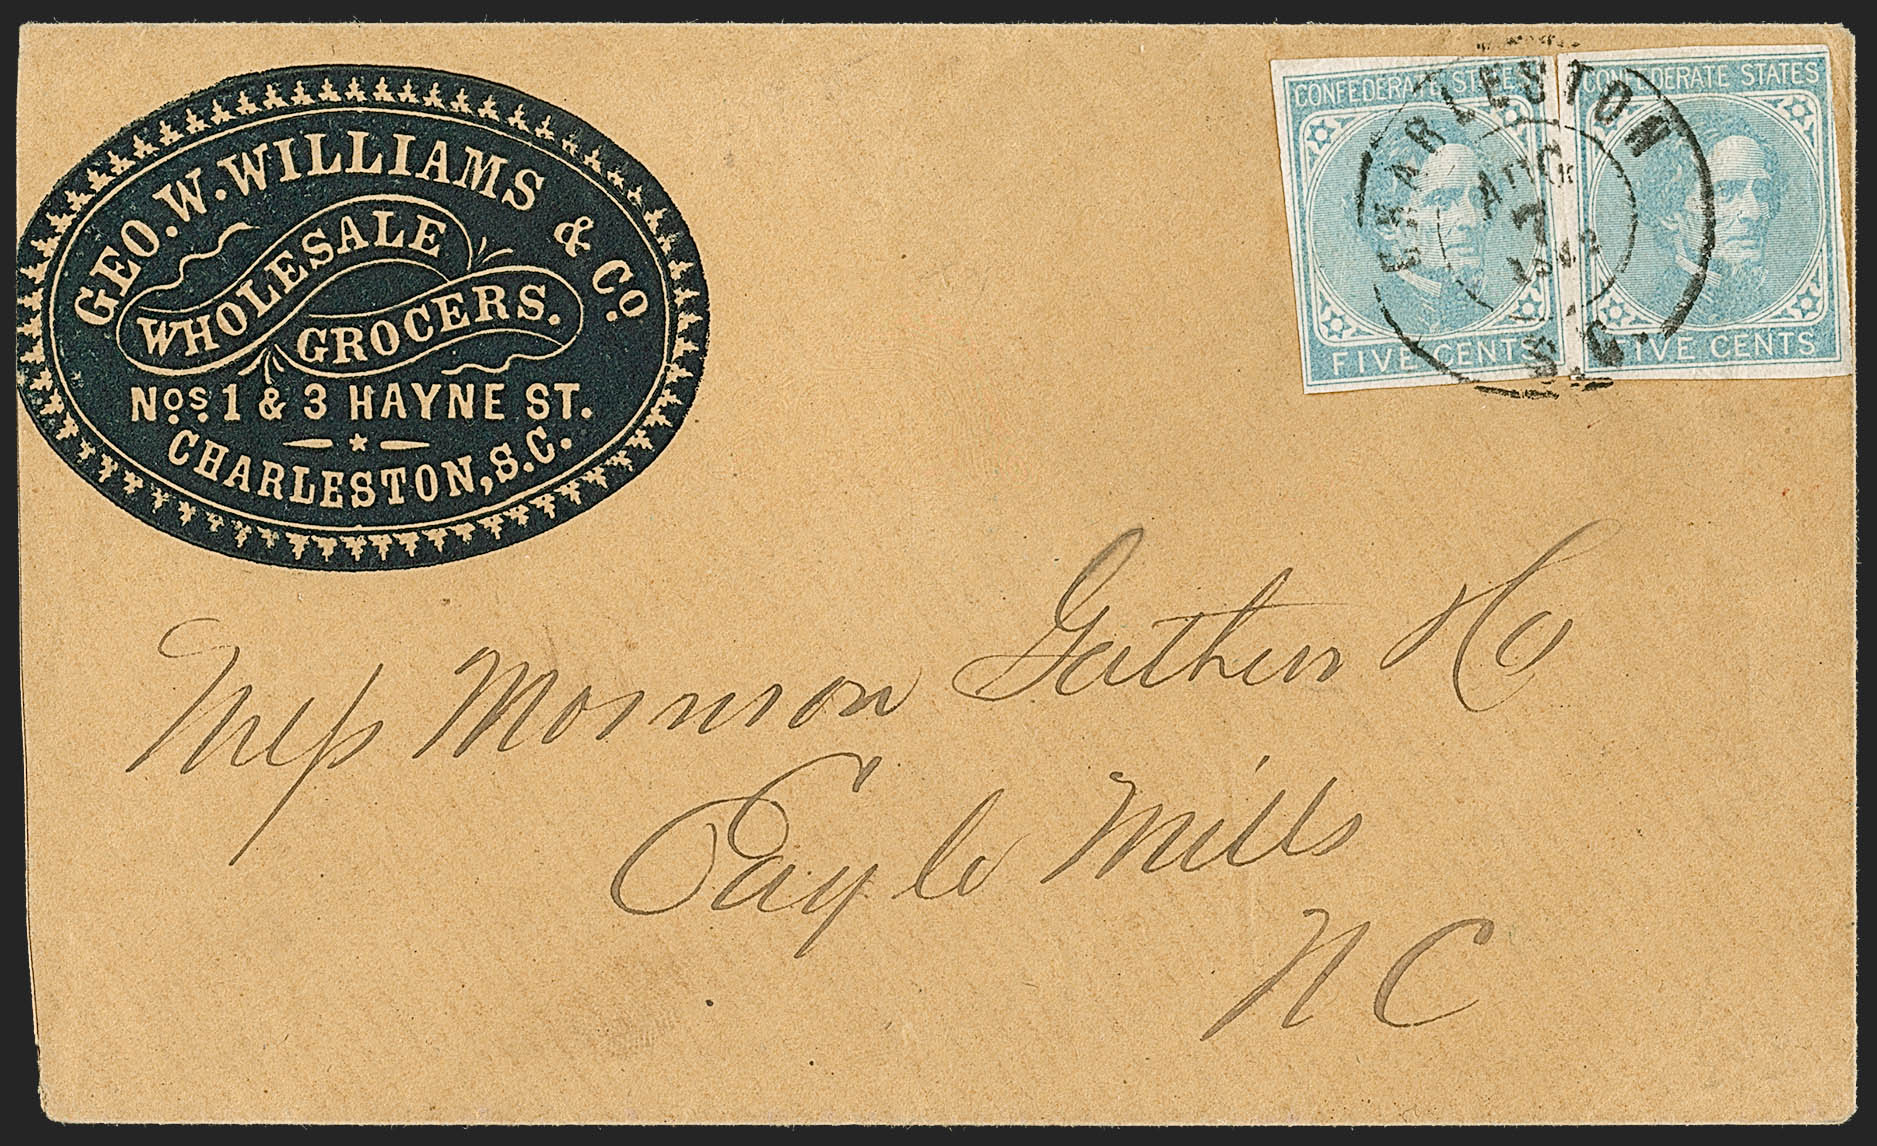 GEO. W. WILLIAMS & CO.
WHOLESALE
GROCERS.
Nos. 1 & 3 HAYNE ST.
CHARLESTON, S.C.
CONFEDERATE STATES
FIVE CENTS
CONFEDERATE STATES
FIVE CENTS
CHARLESTON
AUG
7
S.C.
Morrison Gaither & Co
Eagle Mills
NC